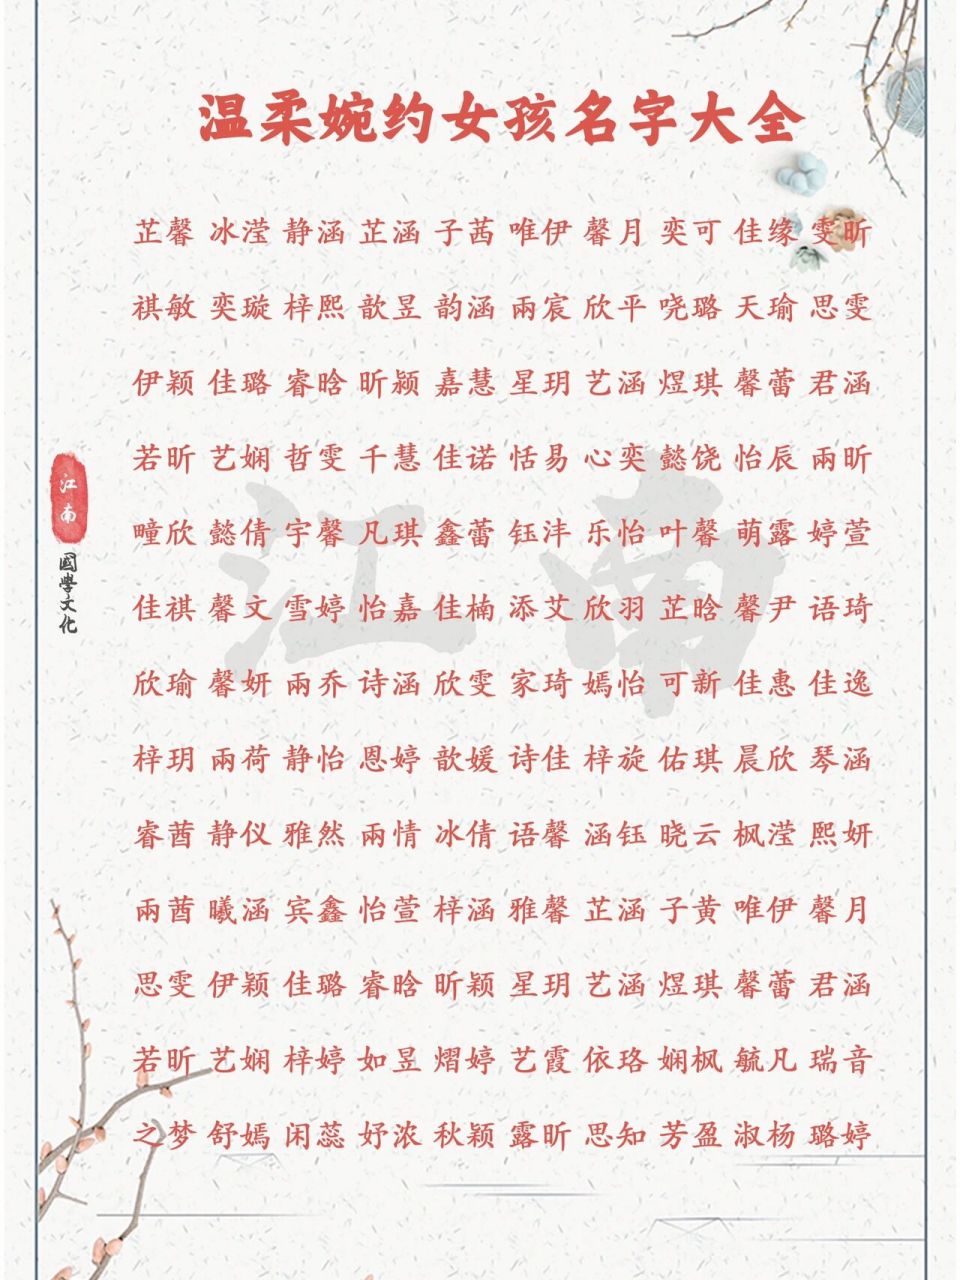 温柔婉约女孩名字大全
芷馨 冰滢 静涵 芷涵 子茜 唯伊 馨月 奕可 佳缘 雯昕
祺敏 奕璇 梓熙 歆昱 韵涵 兩宸 欣平 哓璐 天瑜 思雯
伊颖 佳璐 睿晗 昕颍 嘉慧 星玥 艺涵 煜琪 馨蕾 君涵
若昕 艺娴 哲雯 千慧 佳诺 恬易 心奕 懿饶 怡辰 兩昕
疃欣 懿倩 宇馨 凡琪 鑫蕾 钰沣 乐怡 叶馨 萌露 婷萱
佳祺 馨文 雪婷 怡嘉 佳楠 添艾 欣羽 芷晗 馨尹 语琦
欣瑜 馨妍 兩乔 诗涵 欣雯 家琦 嫣怡 可新 佳惠 佳逸
梓玥 兩荷 静怡 恩婷 歆媛 诗佳 梓旋 佑琪 晨欣 琴涵
睿茜 静仪 雅然 兩情 冰倩 语馨 涵钰 晓云 枫滢 熙妍
兩茜 曦涵 宾鑫 怡萱 梓涵 雅馨 芷涵 子黄 唯伊 馨月
思雯 伊颖 佳璐 睿晗 昕颖 星玥 艺涵 煜琪 馨蕾 君涵
若昕 艺娴 梓婷 如昱 熠婷 艺霞 依珞 娴枫 毓凡 瑞音
之梦 舒嫣 闲蕊 妤浓 秋颖 露昕 思知 芳盈 淑杨 璐婷
江南
國學文化
江南